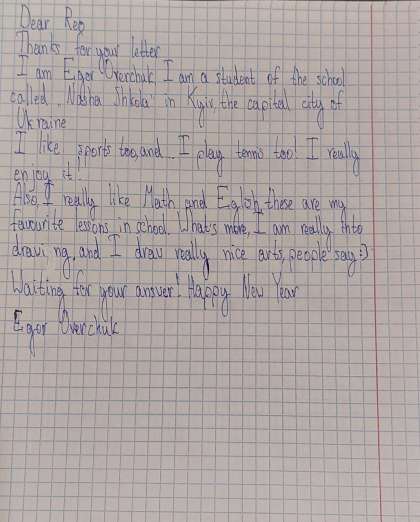 Dear Reo
Thanks for your letter
I am Egor Overchuk. I am a student of the school
called "Nasha Shkola" in Kyiv, the capital city of
Ukraine
I like sports too, and I play tennis too! I really
enjoy it!
Also, I really like Math and Eglish, these are my
favourite lessons in school. What's more, I am really into
drawi ng, and I draw really nice arts, people say :)
Waiting for your answer! Happy New Year
Egor Overchuk